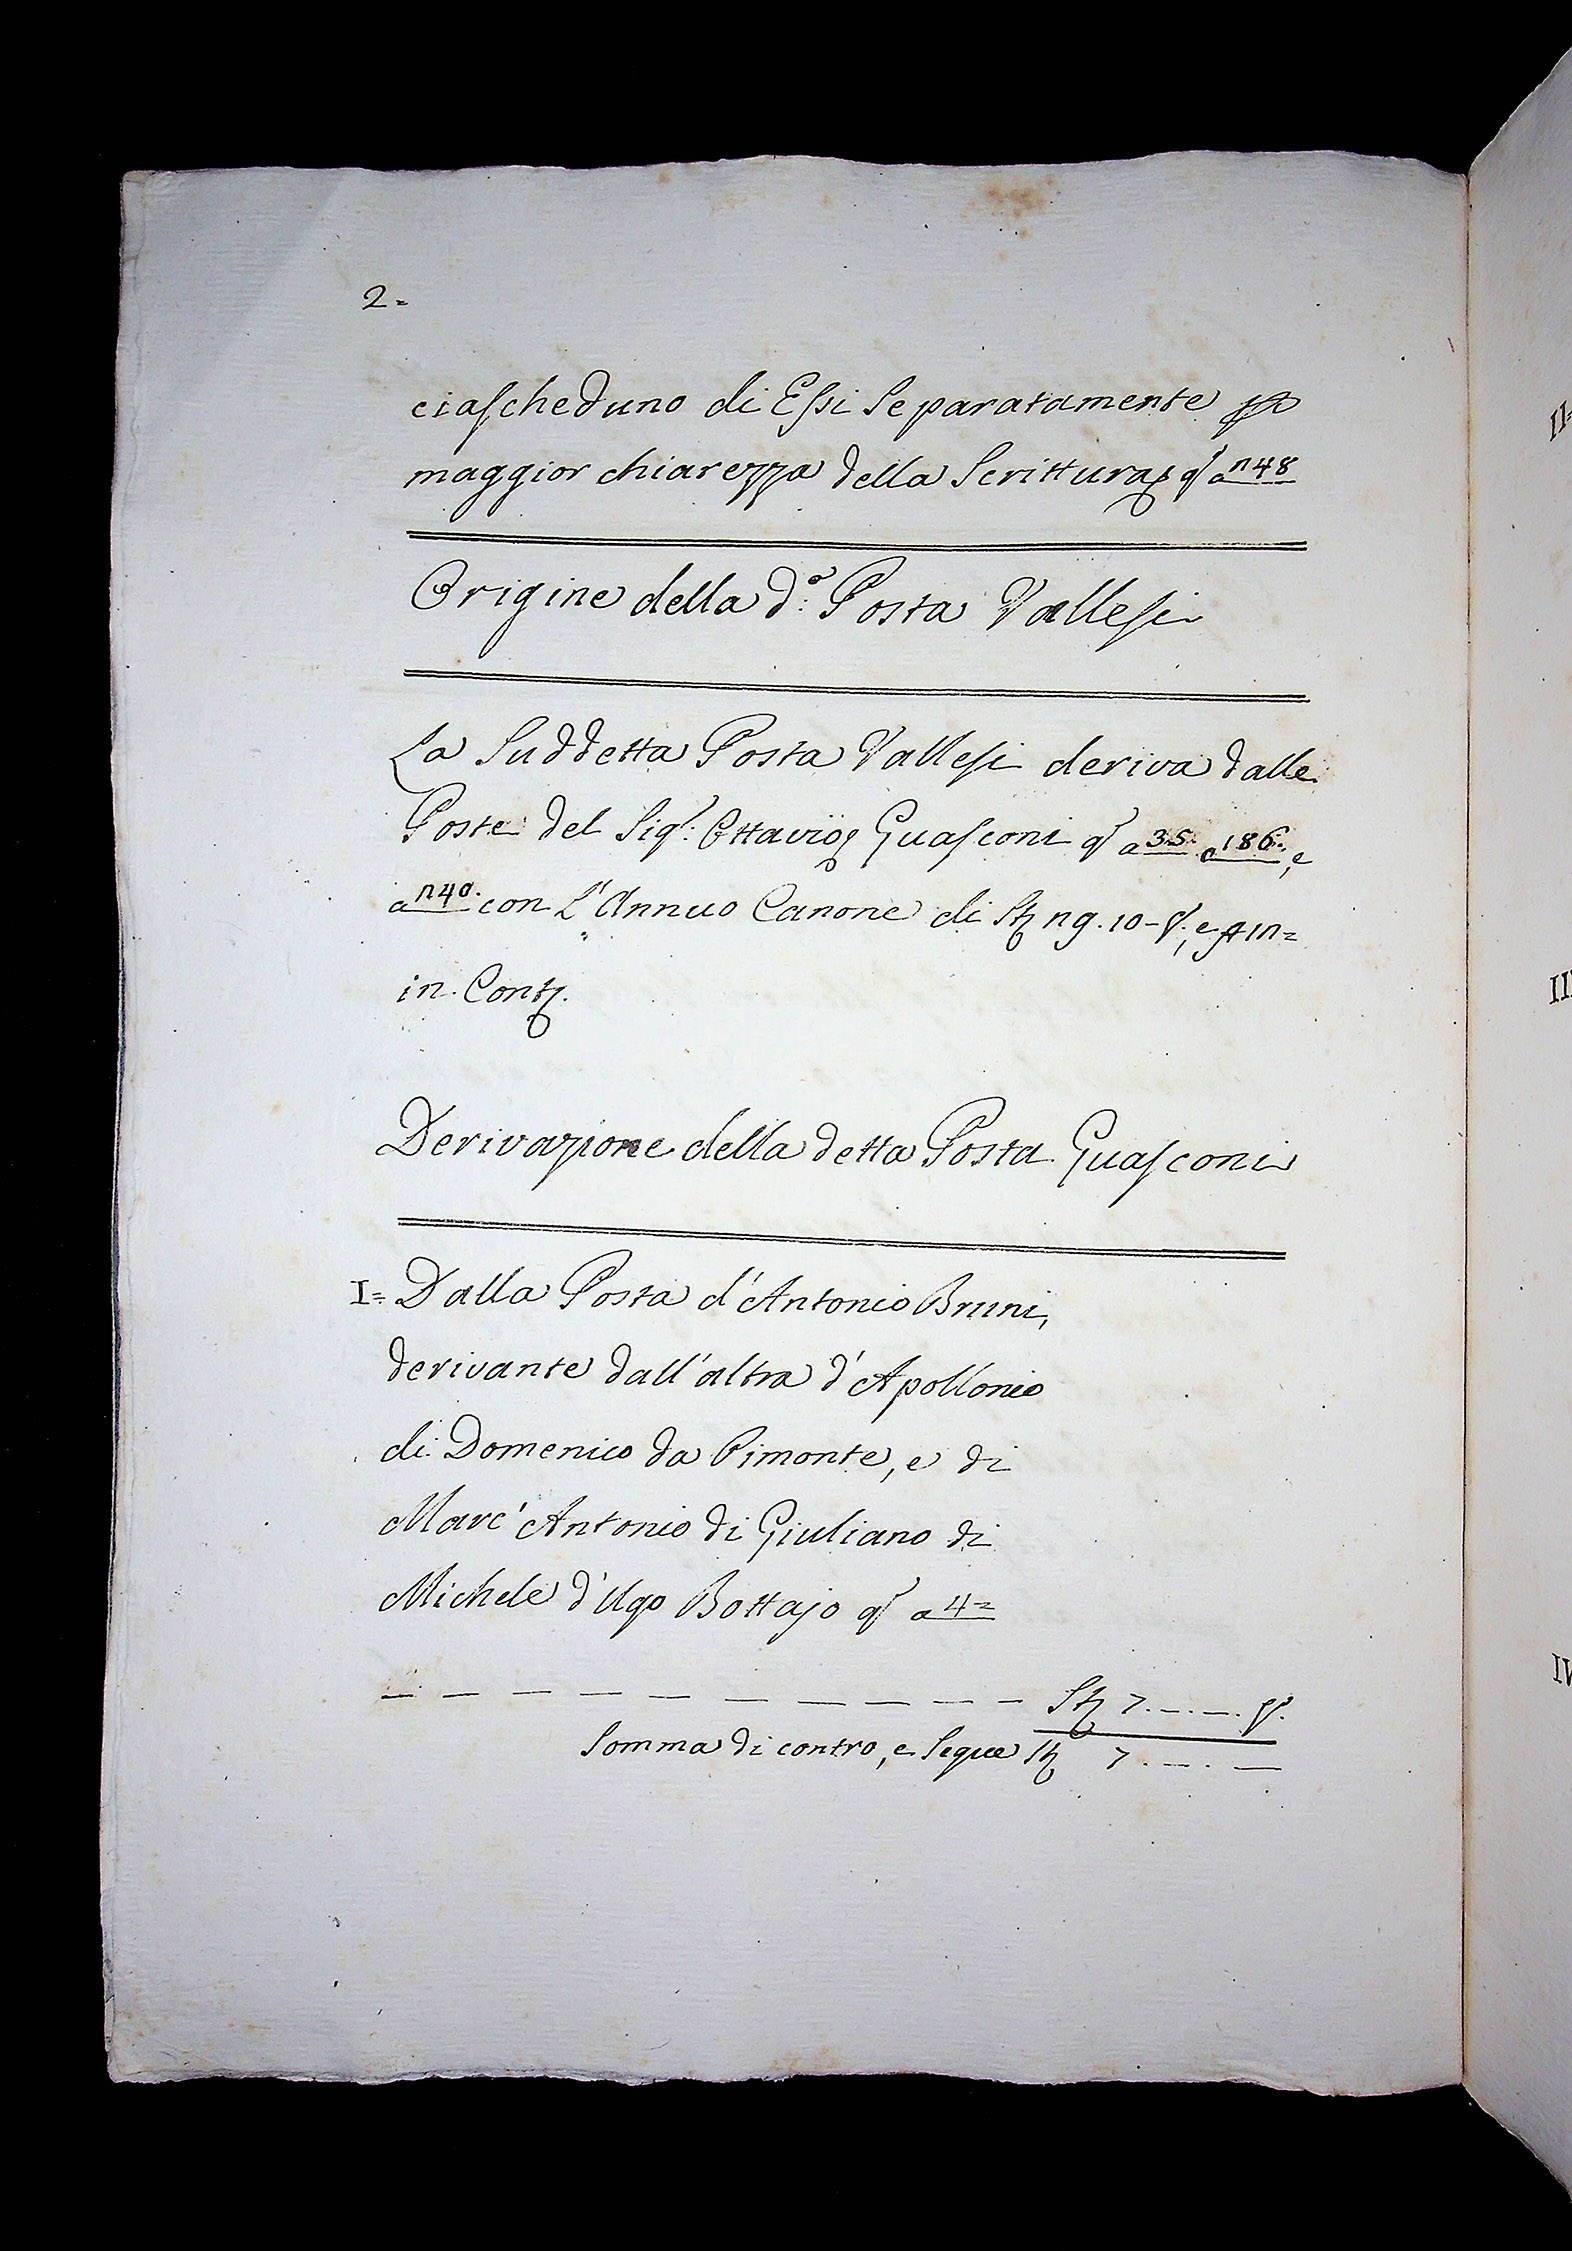 2=
ciascheduno di Essi Separatamente p
maggior chiarezza della Scrittura q a n48
Origine della d:ª Posta Vallesi
La Suddetta Posta Vallesi deriva dalle
Poste del Sigr: Ottavio Guasconi q a 35. e 186., e
a n40. con L'Annuo Canone di St n9.10-
in Cont.
Derivazione della detta Posta Guasconi
I= Dalla Posta d'Antonio Bruni,
derivante dall'altra d'Apollonio
di Domenico da Pimonte, e di
Marc'Antonio di Giuliano di
Michele d'Ugo Bottajo q a 4=
— — — — — — — — — — St 7.—.—.
Somma di contro, e Segue St 7.—.—
II=
III
IV